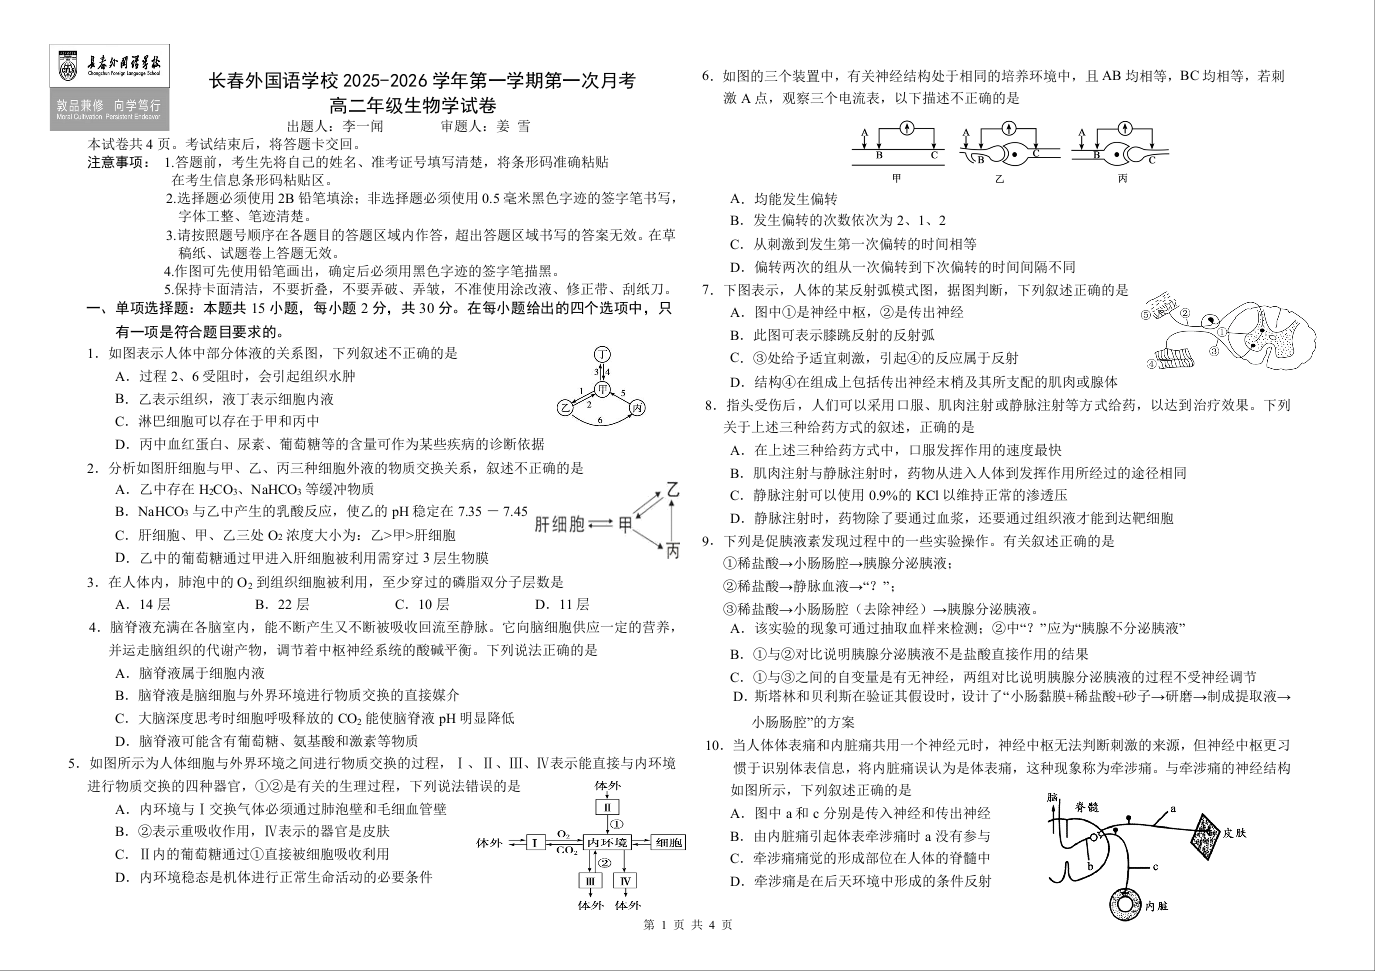 长春外国语学校
Changchun Foreign Language School
敦品兼修 向学笃行
Moral Cultivation Persistent Endeavor
长春外国语学校 2025-2026 学年第一学期第一次月考
高二年级生物学试卷
出题人：李一闻 审题人：姜 雪
本试卷共 4 页。考试结束后，将答题卡交回。
注意事项： 1.答题前，考生先将自己的姓名、准考证号填写清楚，将条形码准确粘贴
在考生信息条形码粘贴区。
2.选择题必须使用 2B 铅笔填涂；非选择题必须使用 0.5 毫米黑色字迹的签字笔书写，
字体工整、笔迹清楚。
3.请按照题号顺序在各题目的答题区域内作答，超出答题区域书写的答案无效。在草
稿纸、试题卷上答题无效。
4.作图可先使用铅笔画出，确定后必须用黑色字迹的签字笔描黑。
5.保持卡面清洁，不要折叠，不要弄破、弄皱，不准使用涂改液、修正带、刮纸刀。
一、单项选择题：本题共 15 小题，每小题 2 分，共 30 分。在每小题给出的四个选项中，只
有一项是符合题目要求的。
1．如图表示人体中部分体液的关系图，下列叙述不正确的是
A．过程 2、6 受阻时，会引起组织水肿
B．乙表示组织，液丁表示细胞内液
C．淋巴细胞可以存在于甲和丙中
D．丙中血红蛋白、尿素、葡萄糖等的含量可作为某些疾病的诊断依据
丁
3 4
甲
1 5
乙 2 丙
6
2．分析如图肝细胞与甲、乙、丙三种细胞外液的物质交换关系，叙述不正确的是
A．乙中存在 H2CO3、NaHCO3 等缓冲物质
B．NaHCO3 与乙中产生的乳酸反应，使乙的 pH 稳定在 7.35 － 7.45
C．肝细胞、甲、乙三处 O2 浓度大小为：乙>甲>肝细胞
D．乙中的葡萄糖通过甲进入肝细胞被利用需穿过 3 层生物膜
乙
肝细胞 甲
丙
3．在人体内，肺泡中的 O2 到组织细胞被利用，至少穿过的磷脂双分子层数是
A．14 层 B．22 层 C．10 层 D．11 层
4．脑脊液充满在各脑室内，能不断产生又不断被吸收回流至静脉。它向脑细胞供应一定的营养，
并运走脑组织的代谢产物，调节着中枢神经系统的酸碱平衡。下列说法正确的是
A．脑脊液属于细胞内液
B．脑脊液是脑细胞与外界环境进行物质交换的直接媒介
C．大脑深度思考时细胞呼吸释放的 CO2 能使脑脊液 pH 明显降低
D．脑脊液可能含有葡萄糖、氨基酸和激素等物质
5．如图所示为人体细胞与外界环境之间进行物质交换的过程，Ⅰ、Ⅱ、Ⅲ、Ⅳ表示能直接与内环境
进行物质交换的四种器官，①②是有关的生理过程，下列说法错误的是
A．内环境与Ⅰ交换气体必须通过肺泡壁和毛细血管壁
B．②表示重吸收作用，Ⅳ表示的器官是皮肤
C．Ⅱ内的葡萄糖通过①直接被细胞吸收利用
D．内环境稳态是机体进行正常生命活动的必要条件
体外
Ⅱ
①
体外 Ⅰ O2 CO2 内环境 细胞
②
Ⅲ Ⅳ
体外 体外
6．如图的三个装置中，有关神经结构处于相同的培养环境中，且 AB 均相等，BC 均相等，若刺
激 A 点，观察三个电流表，以下描述不正确的是
A B C A B C A B C
甲 乙 丙
A．均能发生偏转
B．发生偏转的次数依次为 2、1、2
C．从刺激到发生第一次偏转的时间相等
D．偏转两次的组从一次偏转到下次偏转的时间间隔不同
7．下图表示，人体的某反射弧模式图，据图判断，下列叙述正确的是
A．图中①是神经中枢，②是传出神经
B．此图可表示膝跳反射的反射弧
C．③处给予适宜刺激，引起④的反应属于反射
D．结构④在组成上包括传出神经末梢及其所支配的肌肉或腺体
⑤ ② ① ③ ④
8．指头受伤后，人们可以采用口服、肌肉注射或静脉注射等方式给药，以达到治疗效果。下列
关于上述三种给药方式的叙述，正确的是
A．在上述三种给药方式中，口服发挥作用的速度最快
B．肌肉注射与静脉注射时，药物从进入人体到发挥作用所经过的途径相同
C．静脉注射可以使用 0.9%的 KCl 以维持正常的渗透压
D．静脉注射时，药物除了要通过血浆，还要通过组织液才能到达靶细胞
9．下列是促胰液素发现过程中的一些实验操作。有关叙述正确的是
①稀盐酸→小肠肠腔→胰腺分泌胰液；
②稀盐酸→静脉血液→“？”；
③稀盐酸→小肠肠腔（去除神经）→胰腺分泌胰液。
A．该实验的现象可通过抽取血样来检测；②中“？”应为“胰腺不分泌胰液”
B．①与②对比说明胰腺分泌胰液不是盐酸直接作用的结果
C．①与③之间的自变量是有无神经，两组对比说明胰腺分泌胰液的过程不受神经调节
D．斯塔林和贝利斯在验证其假设时，设计了“小肠黏膜+稀盐酸+砂子→研磨→制成提取液→
小肠肠腔”的方案
10．当人体体表痛和内脏痛共用一个神经元时，神经中枢无法判断刺激的来源，但神经中枢更习
惯于识别体表信息，将内脏痛误认为是体表痛，这种现象称为牵涉痛。与牵涉痛的神经结构
如图所示，下列叙述正确的是
A．图中 a 和 c 分别是传入神经和传出神经
B．由内脏痛引起体表牵涉痛时 a 没有参与
C．牵涉痛痛觉的形成部位在人体的脊髓中
D．牵涉痛是在后天环境中形成的条件反射
脑 脊髓 a
皮肤
b c
内脏
第 1 页 共 4 页